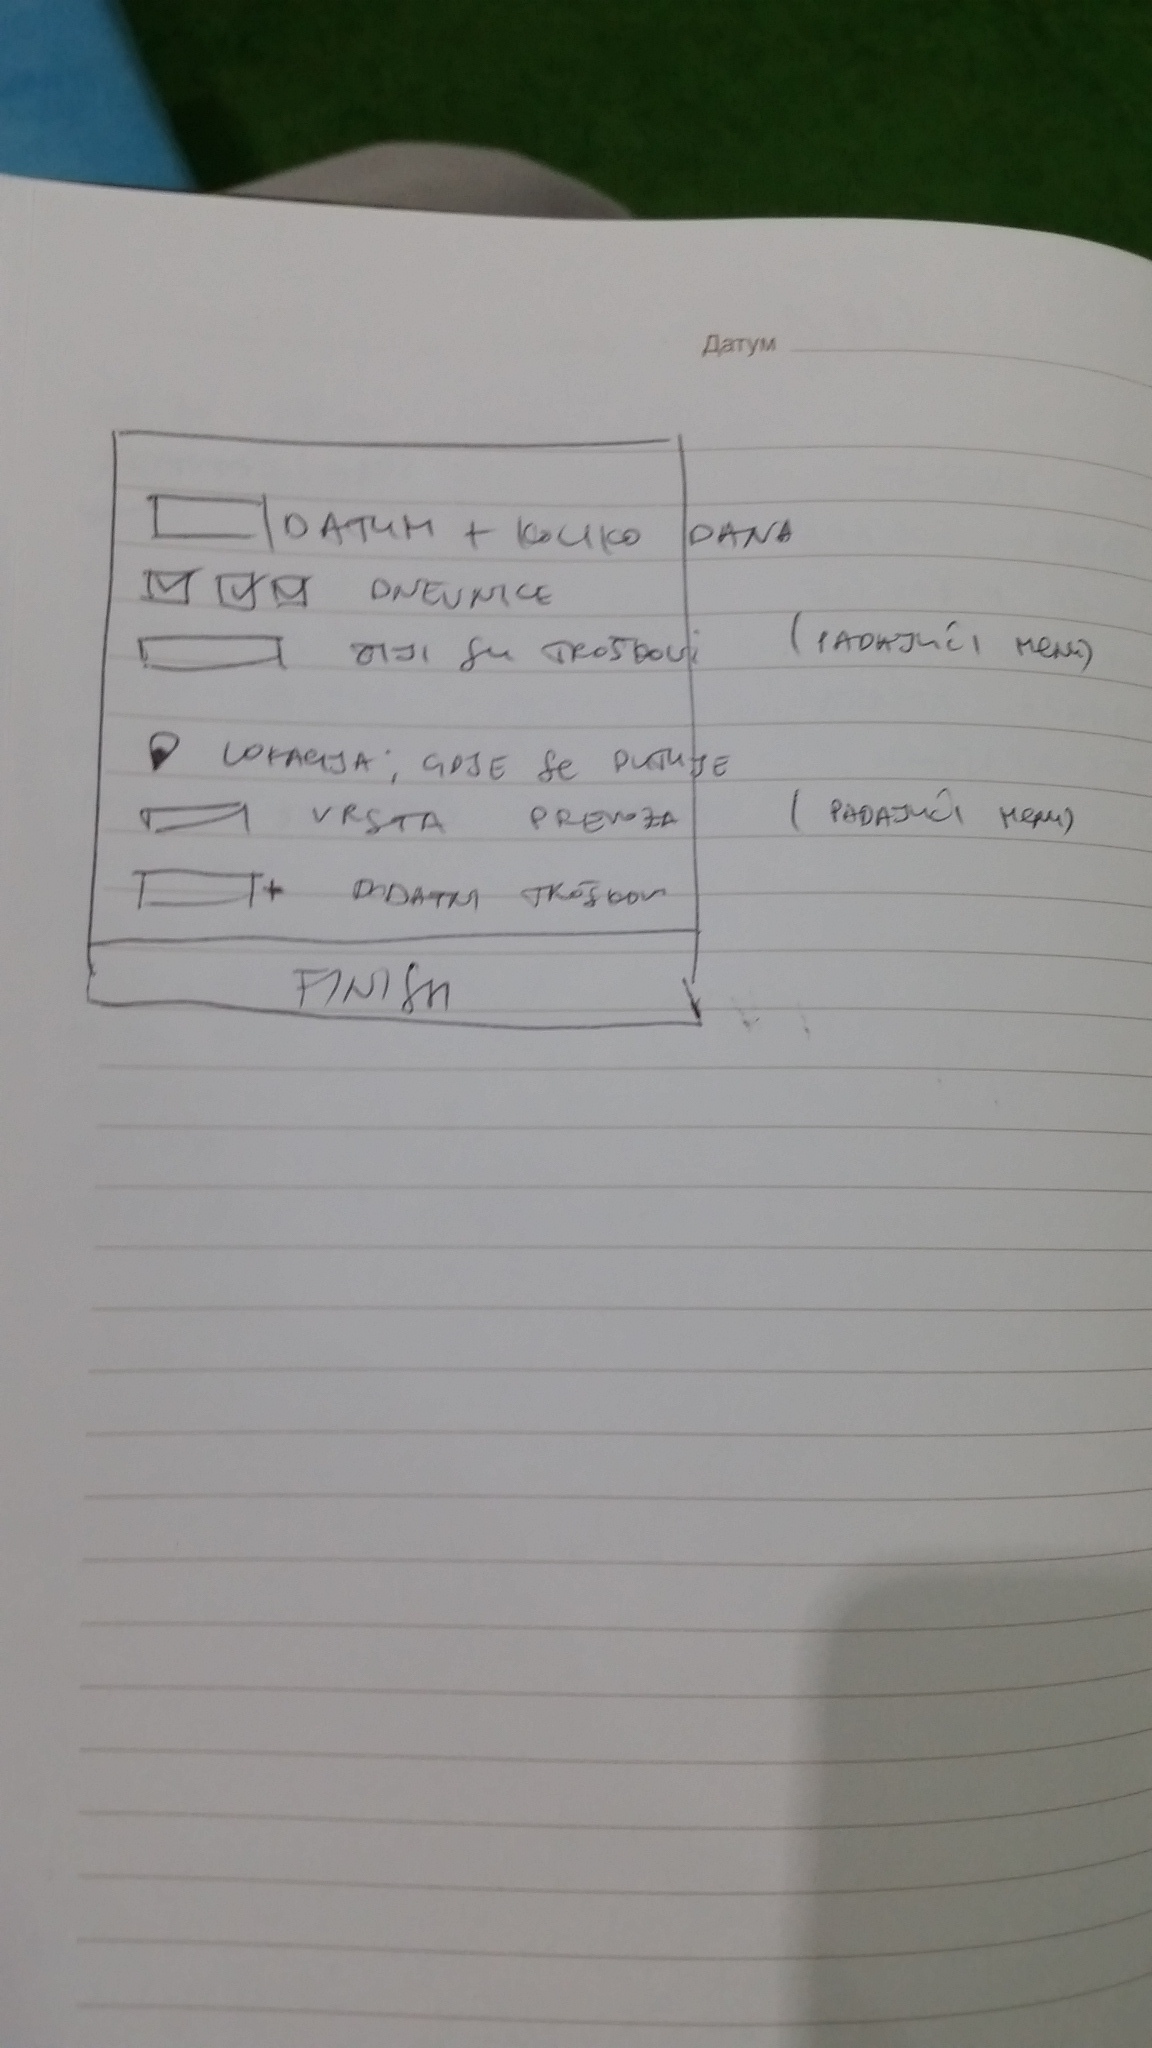 Датум
DATUM + KOLIKO DANA
DNEVNICE
ČIJI SU TROŠKOVI (PADAJUĆI MENU)
LOKACIJA; GDJE SE PUTUJE
VRSTA PREVOZA (PADAJUĆI MENU)
+ DODATNI TROŠKOVI
FINISH